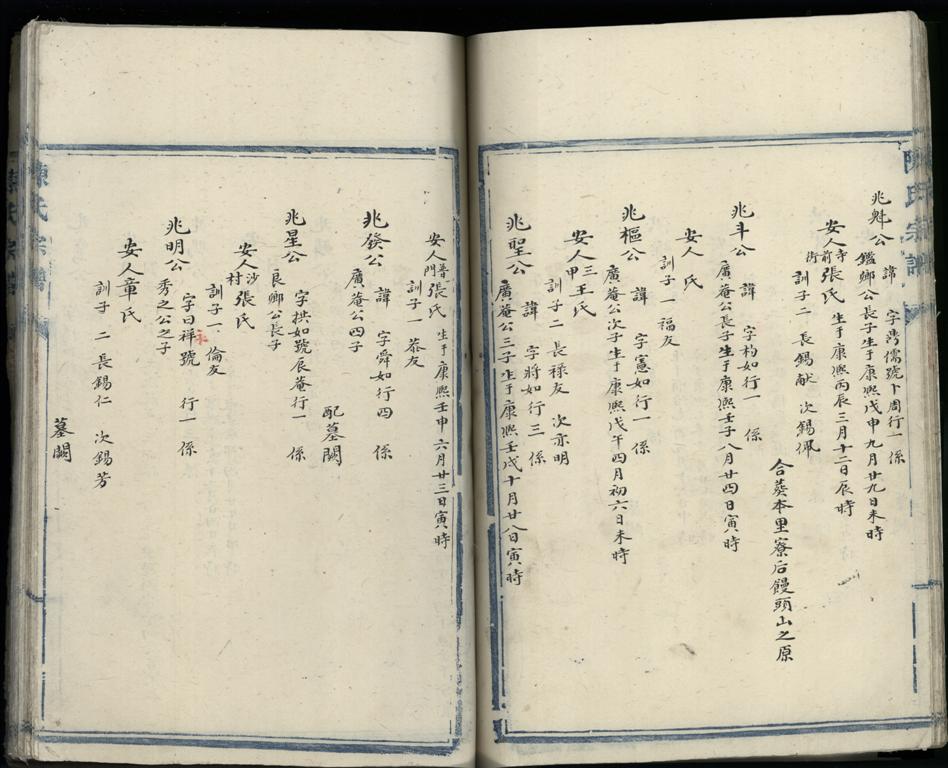 陳氏宗譜
兆魁公
諱 字 儒號卜周行一係
鑑卿公長子生于康熙戊申九月廿九日未時
安人寺前街張氏 生于康熙丙辰三月十二日辰時
訓子二 長錫献 次錫佩
合葬本里寮后饅頭山之原
兆斗公
諱 字杓如行一 係
廣菴公長子生于康熙壬子八月廿四日寅時
安人 氏
訓子一福友
兆樞公
諱 字憲如行一 係
廣菴公次子生于康熙戊午四月初六日未時
安人三甲王氏
訓子二 長禄友 次亦明
兆聖公
諱 字將如行三 係
廣菴公三子生于康熙壬戌十月廿八日寅時
安人普門張氏 生于康熙壬申六月廿三日寅時
訓子一 恭友
兆發公
諱 字舜如行四 係
廣菴公四子
配墓闕
兆星公
字拱如號辰菴行一 係
良卿公長子
安人沙村張氏
訓子一 倫友
兆明公
字曰祥號 行一 係
秀之公之子
安人章氏
訓子 二 長錫仁 次錫芳
墓闕
陳氏宗譜